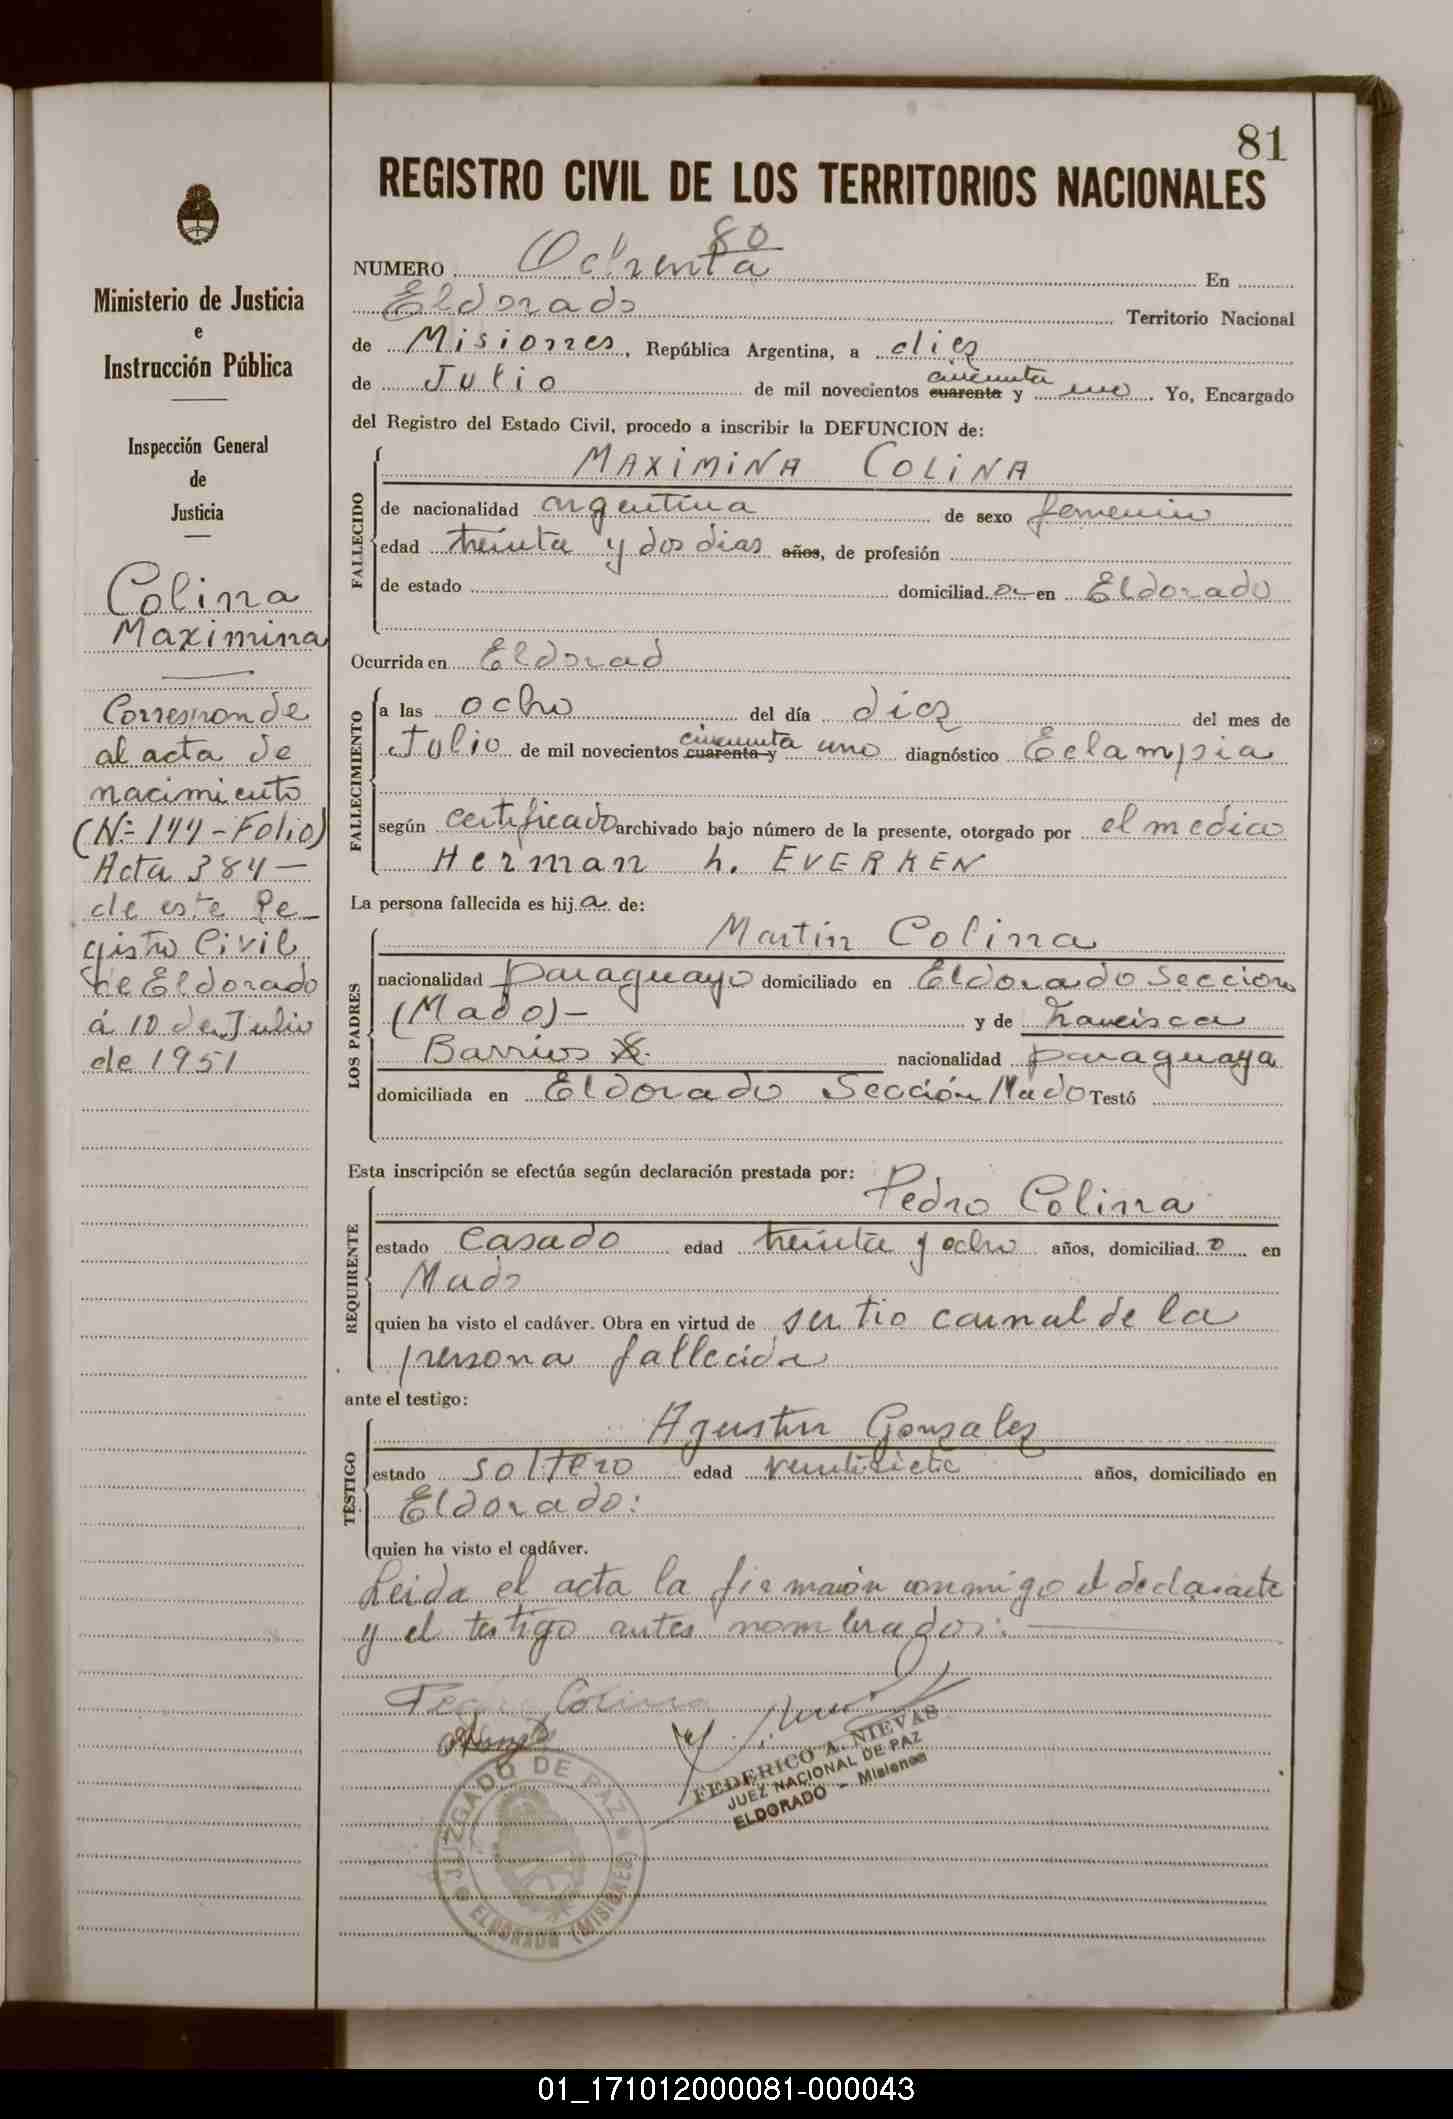 81
REGISTRO CIVIL DE LOS TERRITORIOS NACIONALES
Ministerio de Justicia
e
Instrucción Pública
Inspección General
de
Justicia
Colina
Maximina
Corresponde
al acta de
nacimiento
(Nº 144 - Folio)
Acta 384 -
de este Re_
gistro Civil
de Eldorado
á 10 de Julio
de 1951
80
NUMERO Ochenta En
Eldorado Territorio Nacional
de Misiones, República Argentina, a diez
de Julio de mil novecientos cuarenta cincuenta y uno. Yo, Encargado
del Registro del Estado Civil, procedo a inscribir la DEFUNCION de:
FALLECIDO
MAXIMINA COLINA
de nacionalidad argentina de sexo femenino
edad treinta y dos dias años, de profesión
de estado domiciliad a en Eldorado
Ocurrida en Eldorad
FALLECIMIENTO
a las ocho del día diez del mes de
Julio de mil novecientos cuarenta y cincuenta uno diagnóstico Eclampsia
según certificado archivado bajo número de la presente, otorgado por el medico
Herman h. EVERKEN
La persona fallecida es hij a de:
LOS PADRES
Martín Colina
nacionalidad paraguayo domiciliado en Eldorado Seccion
(Mado) - y de Francisca
Barrios nacionalidad paraguaya
domiciliada en Eldorado Sección Mado Testó
Esta inscripción se efectúa según declaración prestada por:
REQUIRENTE
Pedro Colina
estado Casado edad treinta y ocho años, domiciliad o en
Mado
quien ha visto el cadáver. Obra en virtud de ser tio carnal de la
persona fallecida
ante el testigo:
TESTIGO
Agustin Gonzalez
estado soltero edad veintisiete años, domiciliado en
Eldorado:
quien ha visto el cadáver.
Leida el acta la firmarón conmigo el declarante
y el testigo antes nombrados:
Pedro Colina
FEDERICO A. NIEVAS
JUEZ NACIONAL DE PAZ
ELDORADO - Misiones
JUZGADO DE PAZ
ELDORADO (MISIONES)
01_171012000081-000043